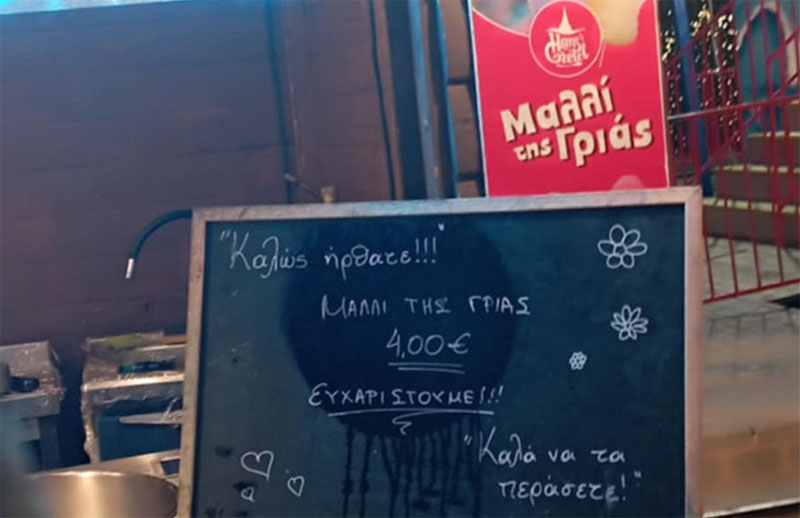 Hansel
Gretel
Μαλλί
της Γριάς
"Καλώς ήρθατε!!!"
ΜΑΛΛΙ ΤΗΣ ΓΡΙΑΣ
4,00€
ΕΥΧΑΡΙΣΤΟΥΜΕ!!!
"Καλά να τα
περάσετε!"